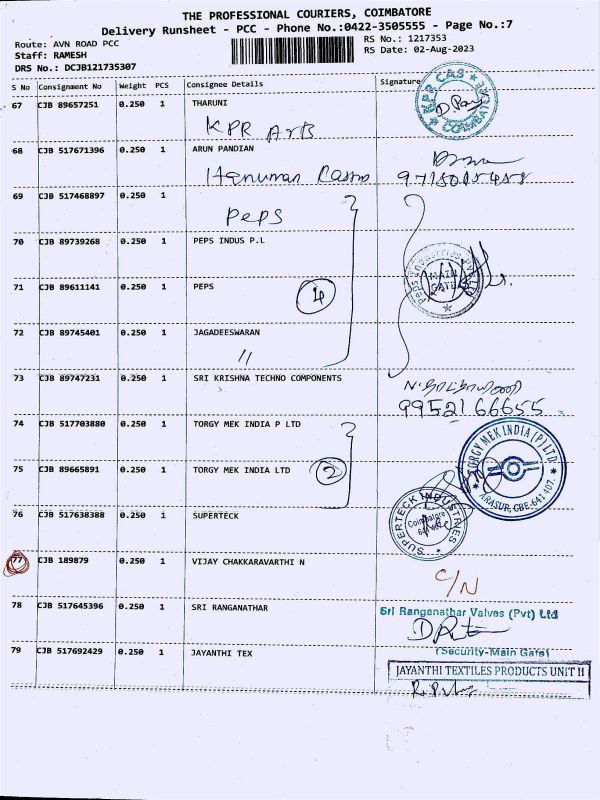 THE PROFESSIONAL COURIERS, COIMBATORE
Delivery Runsheet - PCC - Phone No.:0422-3505555 - Page No.:7
Route: AVN ROAD PCC
RS No.: 1217353
Staff: RAMESH
RS Date: 02-Aug-2023
DRS No.: DCJB121735307
S No Consignment No Weight PCS Consignee Details Signature
67 CJB 89657251 0.250 1 THARUNI
KPR Arts
KPR CAS COIMBATORE
68 CJB 517671396 0.250 1 ARUN PANDIAN
Hanuman
69 CJB 517468897 0.250 1
Peps
70 CJB 89739268 0.250 1 PEPS INDUS P.L
Peps Industries Pvt Ltd MAIN GATE
71 CJB 89611141 0.250 1 PEPS
4
72 CJB 89745401 0.250 1 JAGADEESWARAN
11
73 CJB 89747231 0.250 1 SRI KRISHNA TECHNO COMPONENTS
9952166655
74 CJB 517703880 0.250 1 TORGY MEK INDIA P LTD
TORGY MEK INDIA (P) LTD ARASUR, CBE-641 407.
75 CJB 89665891 0.250 1 TORGY MEK INDIA LTD
2
76 CJB 517638388 0.250 1 SUPERTECK
SUPERTECK INDUSTRIES Coimbatore
77 CJB 189879 0.250 1 VIJAY CHAKKARAVARTHI N
C/N
78 CJB 517645396 0.250 1 SRI RANGANATHAR
Sri Ranganathar Valves (Pvt) Ltd
(Security-Main Gate)
79 CJB 517692429 0.250 1 JAYANTHI TEX
JAYANTHI TEXTILES PRODUCTS UNIT II